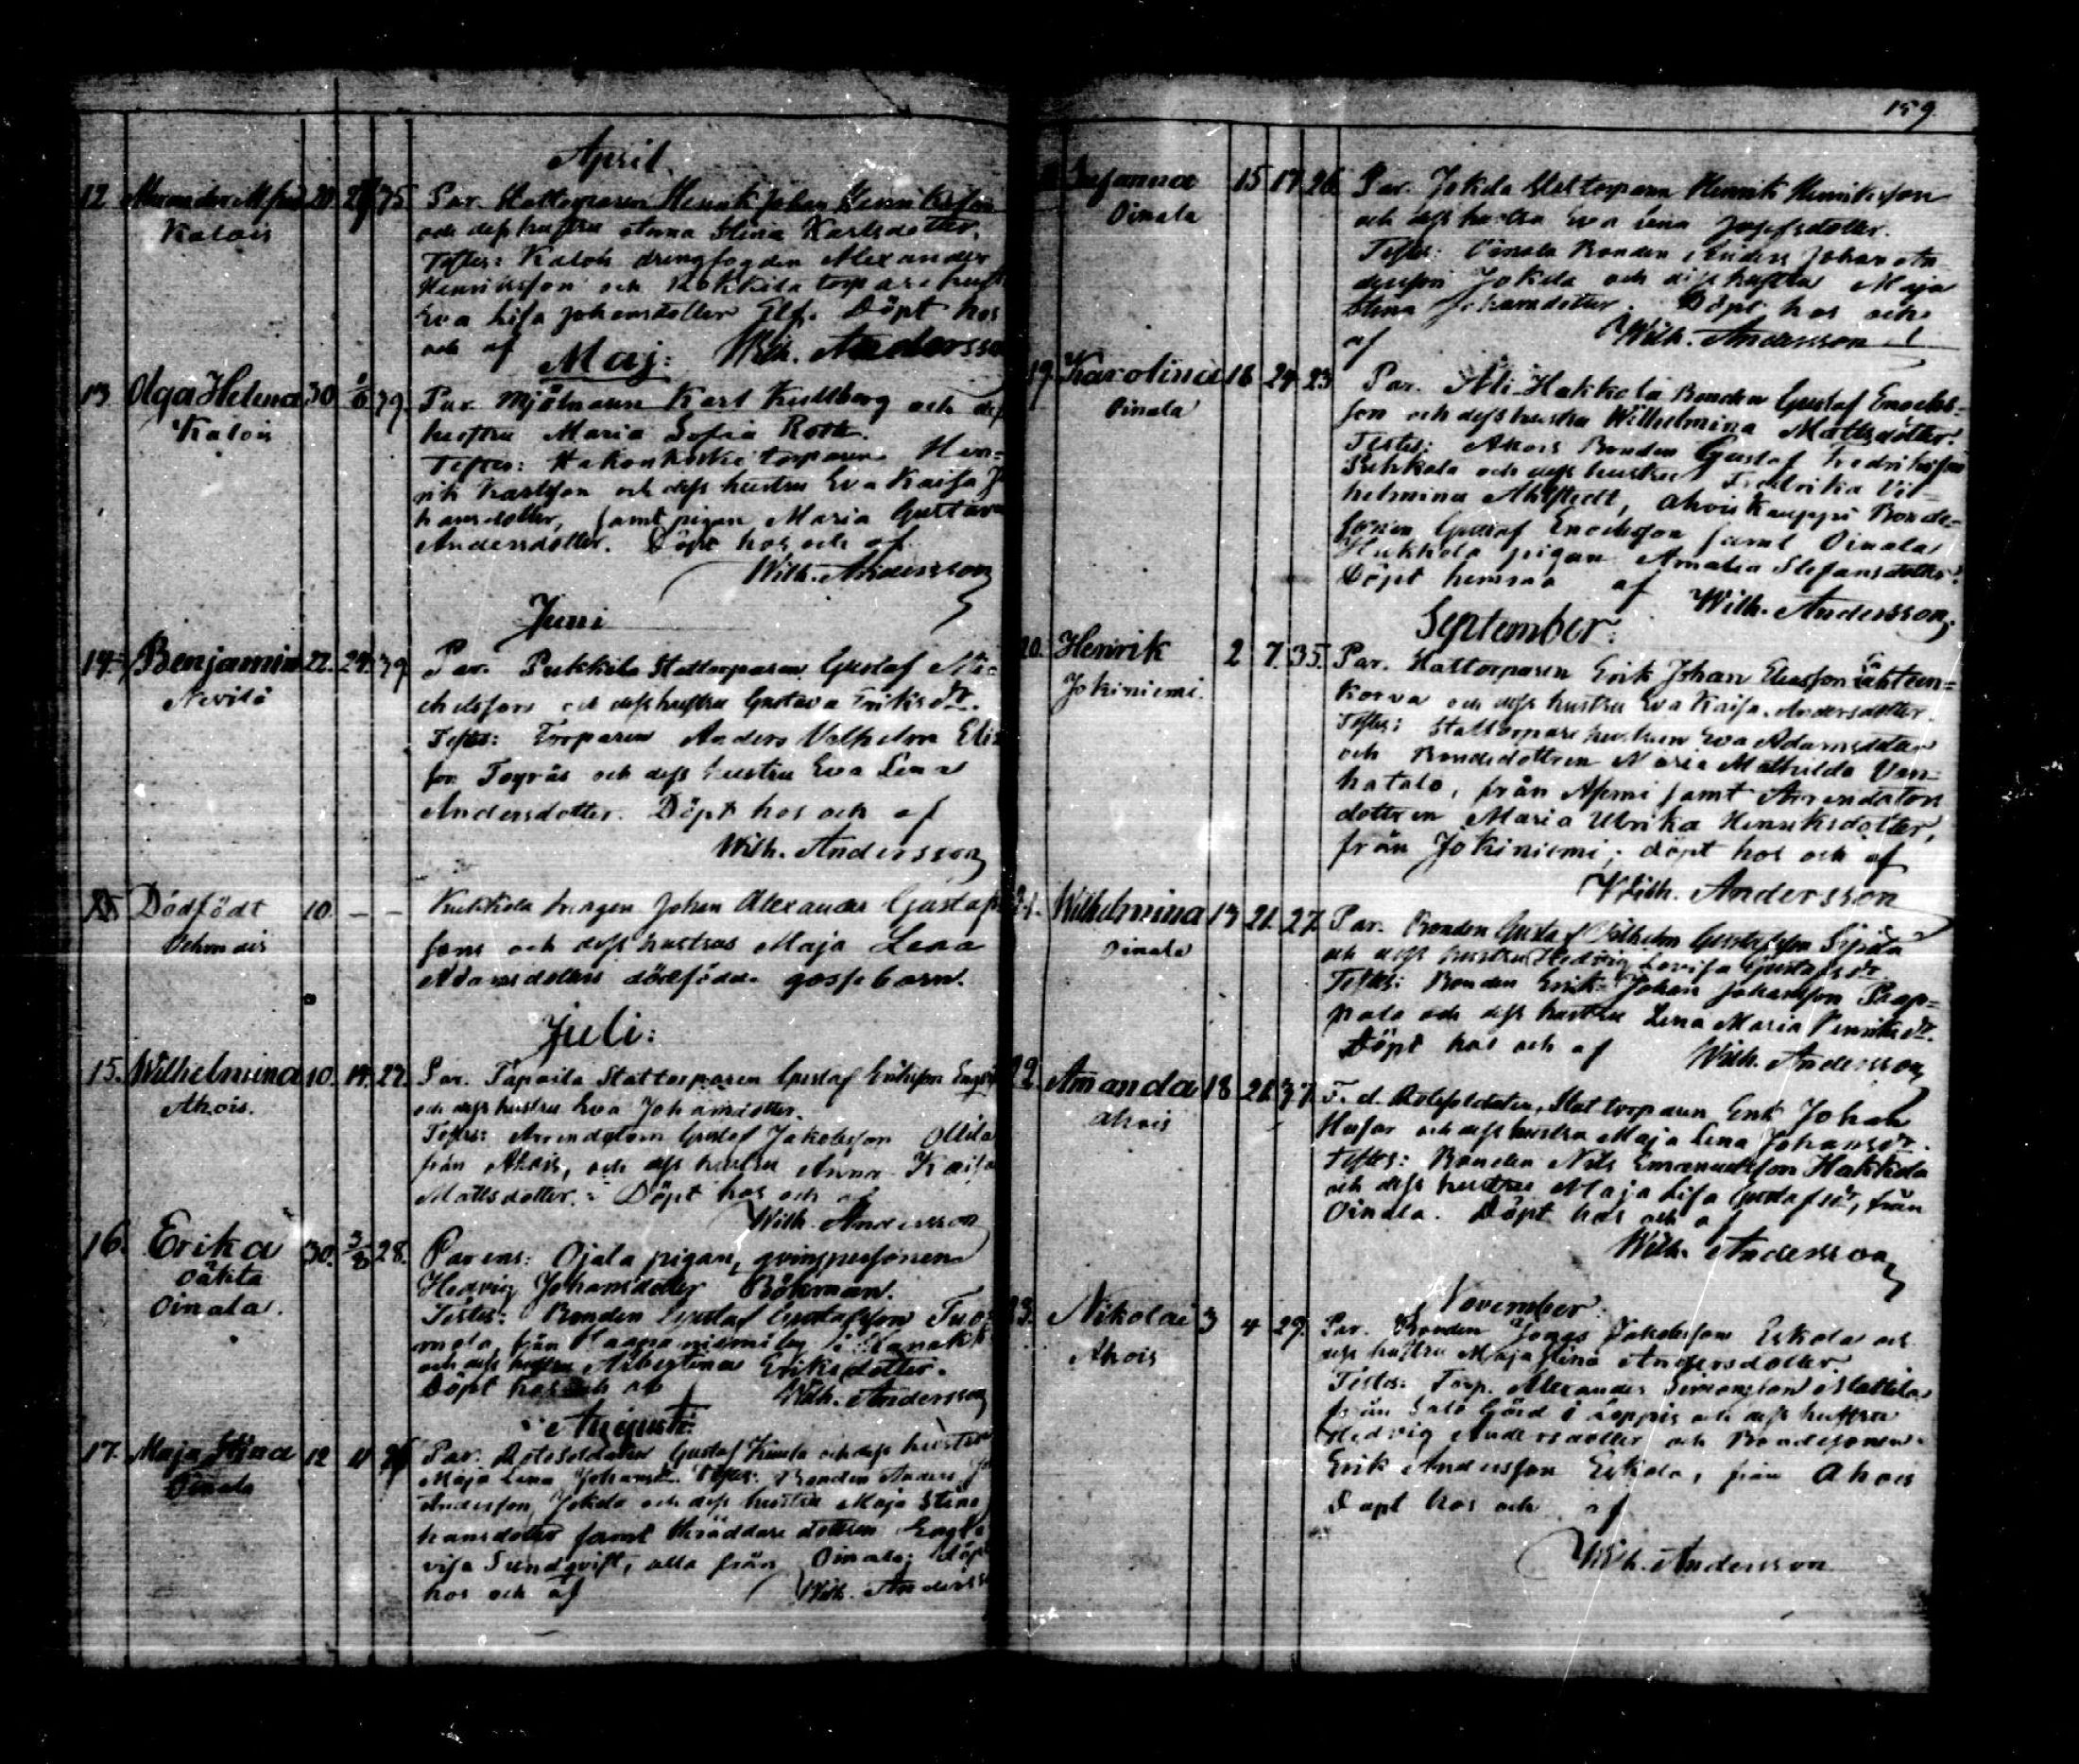 April.
12 Alexander Alfred 20. 27. 35. Par. Stattorparen Henrik Johan Henriksson
Kalois och dess hustru Anna Stina Karlsdotter.
Testes: Kalois drengfogden Alexander
Henriksson och Kokkila torpare hustr
Eva Lisa Johansdotter Elf. Döpt hos
och af Wilh. Andersson
Maj:
13 Olga Helena 30 1/6 39. Par. Mjölnaren Karl Kullberg och dess
Kalois hustru Maria Sofia Roth.
Testes: torparen Hen=
rik Karlsson och dess hustru Eva Kaisa Jo
hansdotter, samt pigan Maria Gustava
Andersdotter. Döpt hos och af
Wilh. Andersson
Juni
14. Benjamin 22. 24. 39 Par. Pukkila Stattorparen Gustaf Mi=
Nevilä chelsson och dess hustru Gustava Eriksdr.
Testes: Torparen Anders Vilhelm Elis
son Toyräs och dess hustru Eva Lena
Andersdotter. Döpt hos och af
Wilh. Andersson
Dödfödt 10. – – Kukkola drengen Johan Alexander Gustafs
sons och dess hustrus Maja Lena
Adamsdotters dödfödde gossebarn.
Juli:
15. Wilhelmina 10. 14. 22. Par. Tapaila Stattorparen Gustaf Eriksson
Ahois. och dess hustru Eva Johansdotter.
Testes: Arrendatorn Gustaf Jakobsson Ollila
från Ahois, och dess hustru Anna Kaisa
Mattsdotter. Döpt hos och af
Wilh. Andersson
16. Erika 30. 3/8 28. Parens: Ojala pigan, qvinspersonen
oäkta Hedvig Johansdotter Bökman.
Oinala. Testes: Bonden Gustaf Gustafsson Tuo
mola, från by i
och dess hustru Albertina Eriksdotter.
Döpt hos och af Wilh. Andersson
Augusti:
17. Maja Stina 12 11 Par. Rotesoldaten Gustaf och dess hustru
Oinala Maja Lena Johansdr. Testes: Bonden Anders Jo
Andersson Jokela och dess hustru Maja Stina
hansdotter samt skräddare dottren
visa Sundqvist, alla från Oinala; döpt
hos och af Wilh. Andersson
159.
Susanna 15 17 26. Par. Jokela Stattorparen Henrik Henriksson
Oinala och dess hustru Eva Lena Josefsdotter.
Testes: Oinala Bonden Anders Johan An
dersson Jokela och dess hustru Maja
Stina Johansdotter. Döpt hos och
af Wilh. Andersson
19. Karolina 16 24. 23 Par. Ali-Hakkola Bonden Gustaf Enochs=
Oinala son och dess hustru Wilhelmina Mattsdotter.
Testes: Ahois Bonden Gustaf Fredriksson
och dess hustru Fredrika Vil=
helmina Ahlstedt, Ahois Kauppi Bonde=
sonen Gustaf Enochsson samt Oinala
Hakkola pigan Amalia Stefansdotter.
Döpt hemma af Wilh. Andersson.
September:
20. Henrik 2 7. 35. Par. Stattorparen Erik Johan Eliasson Lähteen=
Jokiniemi. korva och dess hustru Eva Kaisa Andersdotter.
Testes: Stattorpare hustrun Eva Adamsdotter
och Bondedottren Maria Mathilda Van=
hatalo, från samt Arrendator
dottren Maria Ulrika Henriksdotter,
från Jokiniemi; döpt hos och af
Wilh. Andersson
21. Wilhelmina 13 21. 27. Par. Bonden Gustaf Vilhelm Gustafsson Sipilä
Oinala och dess hustru Hedvig Lovisa Gustafsdr.
Testes: Bonden Erik Johan Johansson Pap=
pala och dess hustru Lena Maria Henriksdr.
Döpt hos och af Wilh. Andersson
22. Amanda 18 21. 37. F. d. Rotesoldaten, Stattorparen Erik Johan
Ahois Husar och dess hustru Maja Lena Johansdr.
Testes: Bonden Nils Emanuelsson Hakkola
och dess hustru Maja Lisa Gustafsdr, från
Oinala. Döpt hos och af
Wilh. Andersson
November:
23. Nikolai 3 4 29. Par. Bonden Jonas Jakobsson Eskola och
Ahois dess hustru Maja Stina Andersdotter
Testes: Torp. Alexander Simonsson Mattila
från Salo Gård i Loppis och dess hustru
Hedvig Andersdotter och Bondesonen
Erik Andersson Eskola, från Ahois
Döpt hos och af
Wilh. Andersson